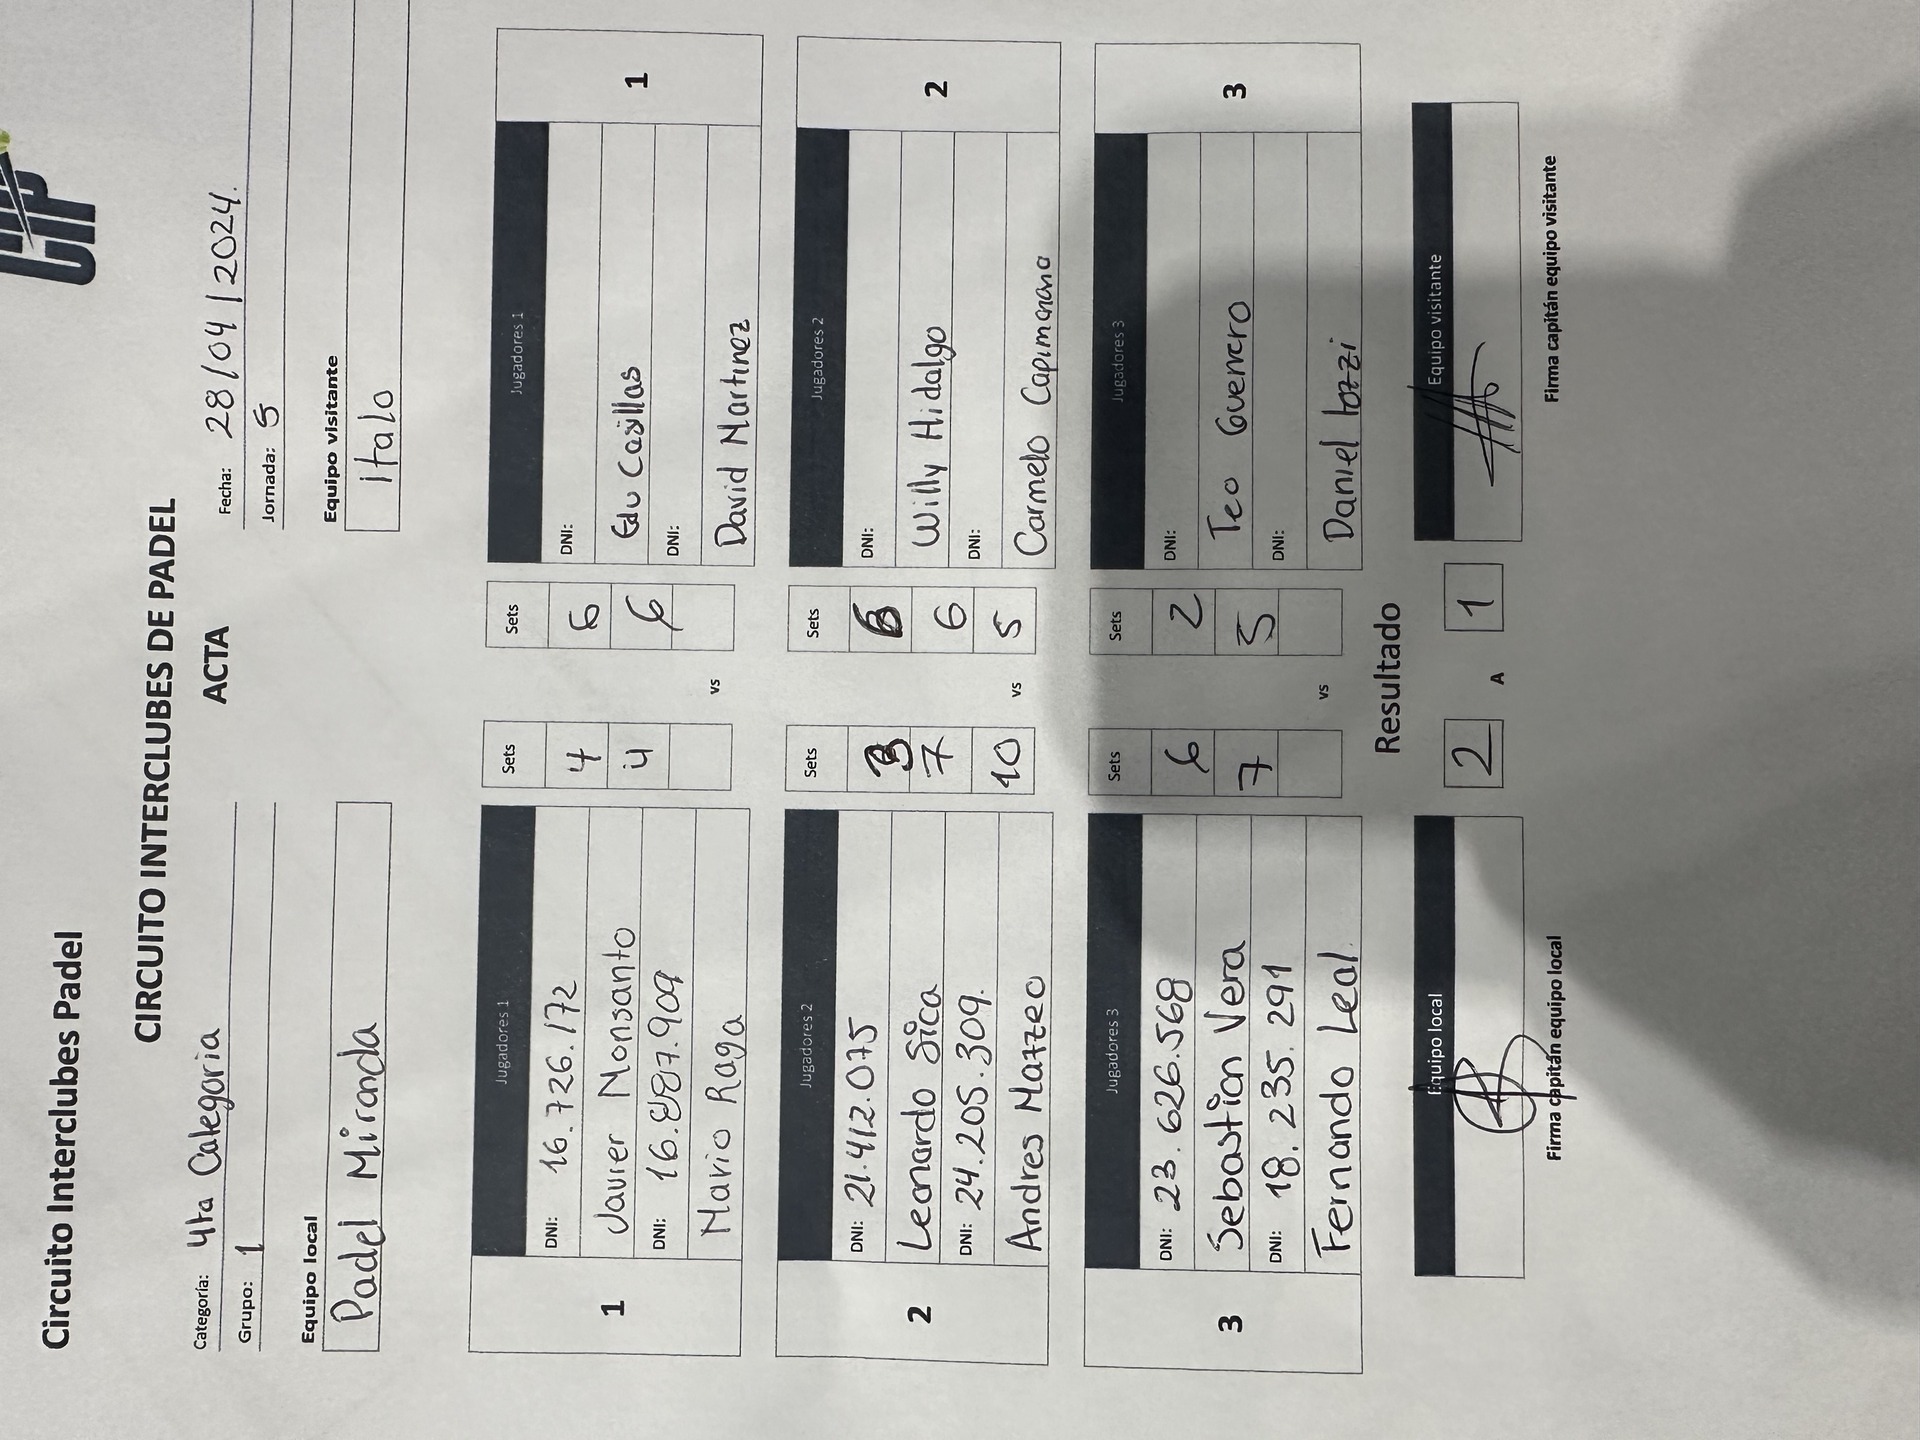 CIP
Circuito Interclubes Padel
CIRCUITO INTERCLUBES DE PADEL
ACTA
Categoria: 4ta Categoria
Fecha: 28/04/2024.
Grupo: 1
Jornada: 5
Equipo local
Equipo visitante
Padel Miranda
Italo
Jugadores 1 Sets Sets Jugadores 1
1 DNI: 16.726.172 4 6 DNI: 1
Javier Monsanto 4 6 Edu Casillas
DNI: 16.887.909 DNI:
Mario Raga vs David Martinez
Jugadores 2 Sets Sets Jugadores 2
2 DNI: 21.412.075 3 6 DNI: 2
Leonardo Sica 7 6 Willy Hidalgo
DNI: 24.205.309. 10 5 DNI:
Andres Mazzeo vs Carmelo Capimanano
Jugadores 3 Sets Sets Jugadores 3
3 DNI: 23.626.568 6 2 DNI: 3
Sebastian Vera 7 5 Teo Guerrero
DNI: 18.235.291 DNI:
Fernando Leal. vs Daniel Iozzi
Resultado
Equipo local 2 A 1 Equipo visitante
Firma capitán equipo local
Firma capitán equipo visitante